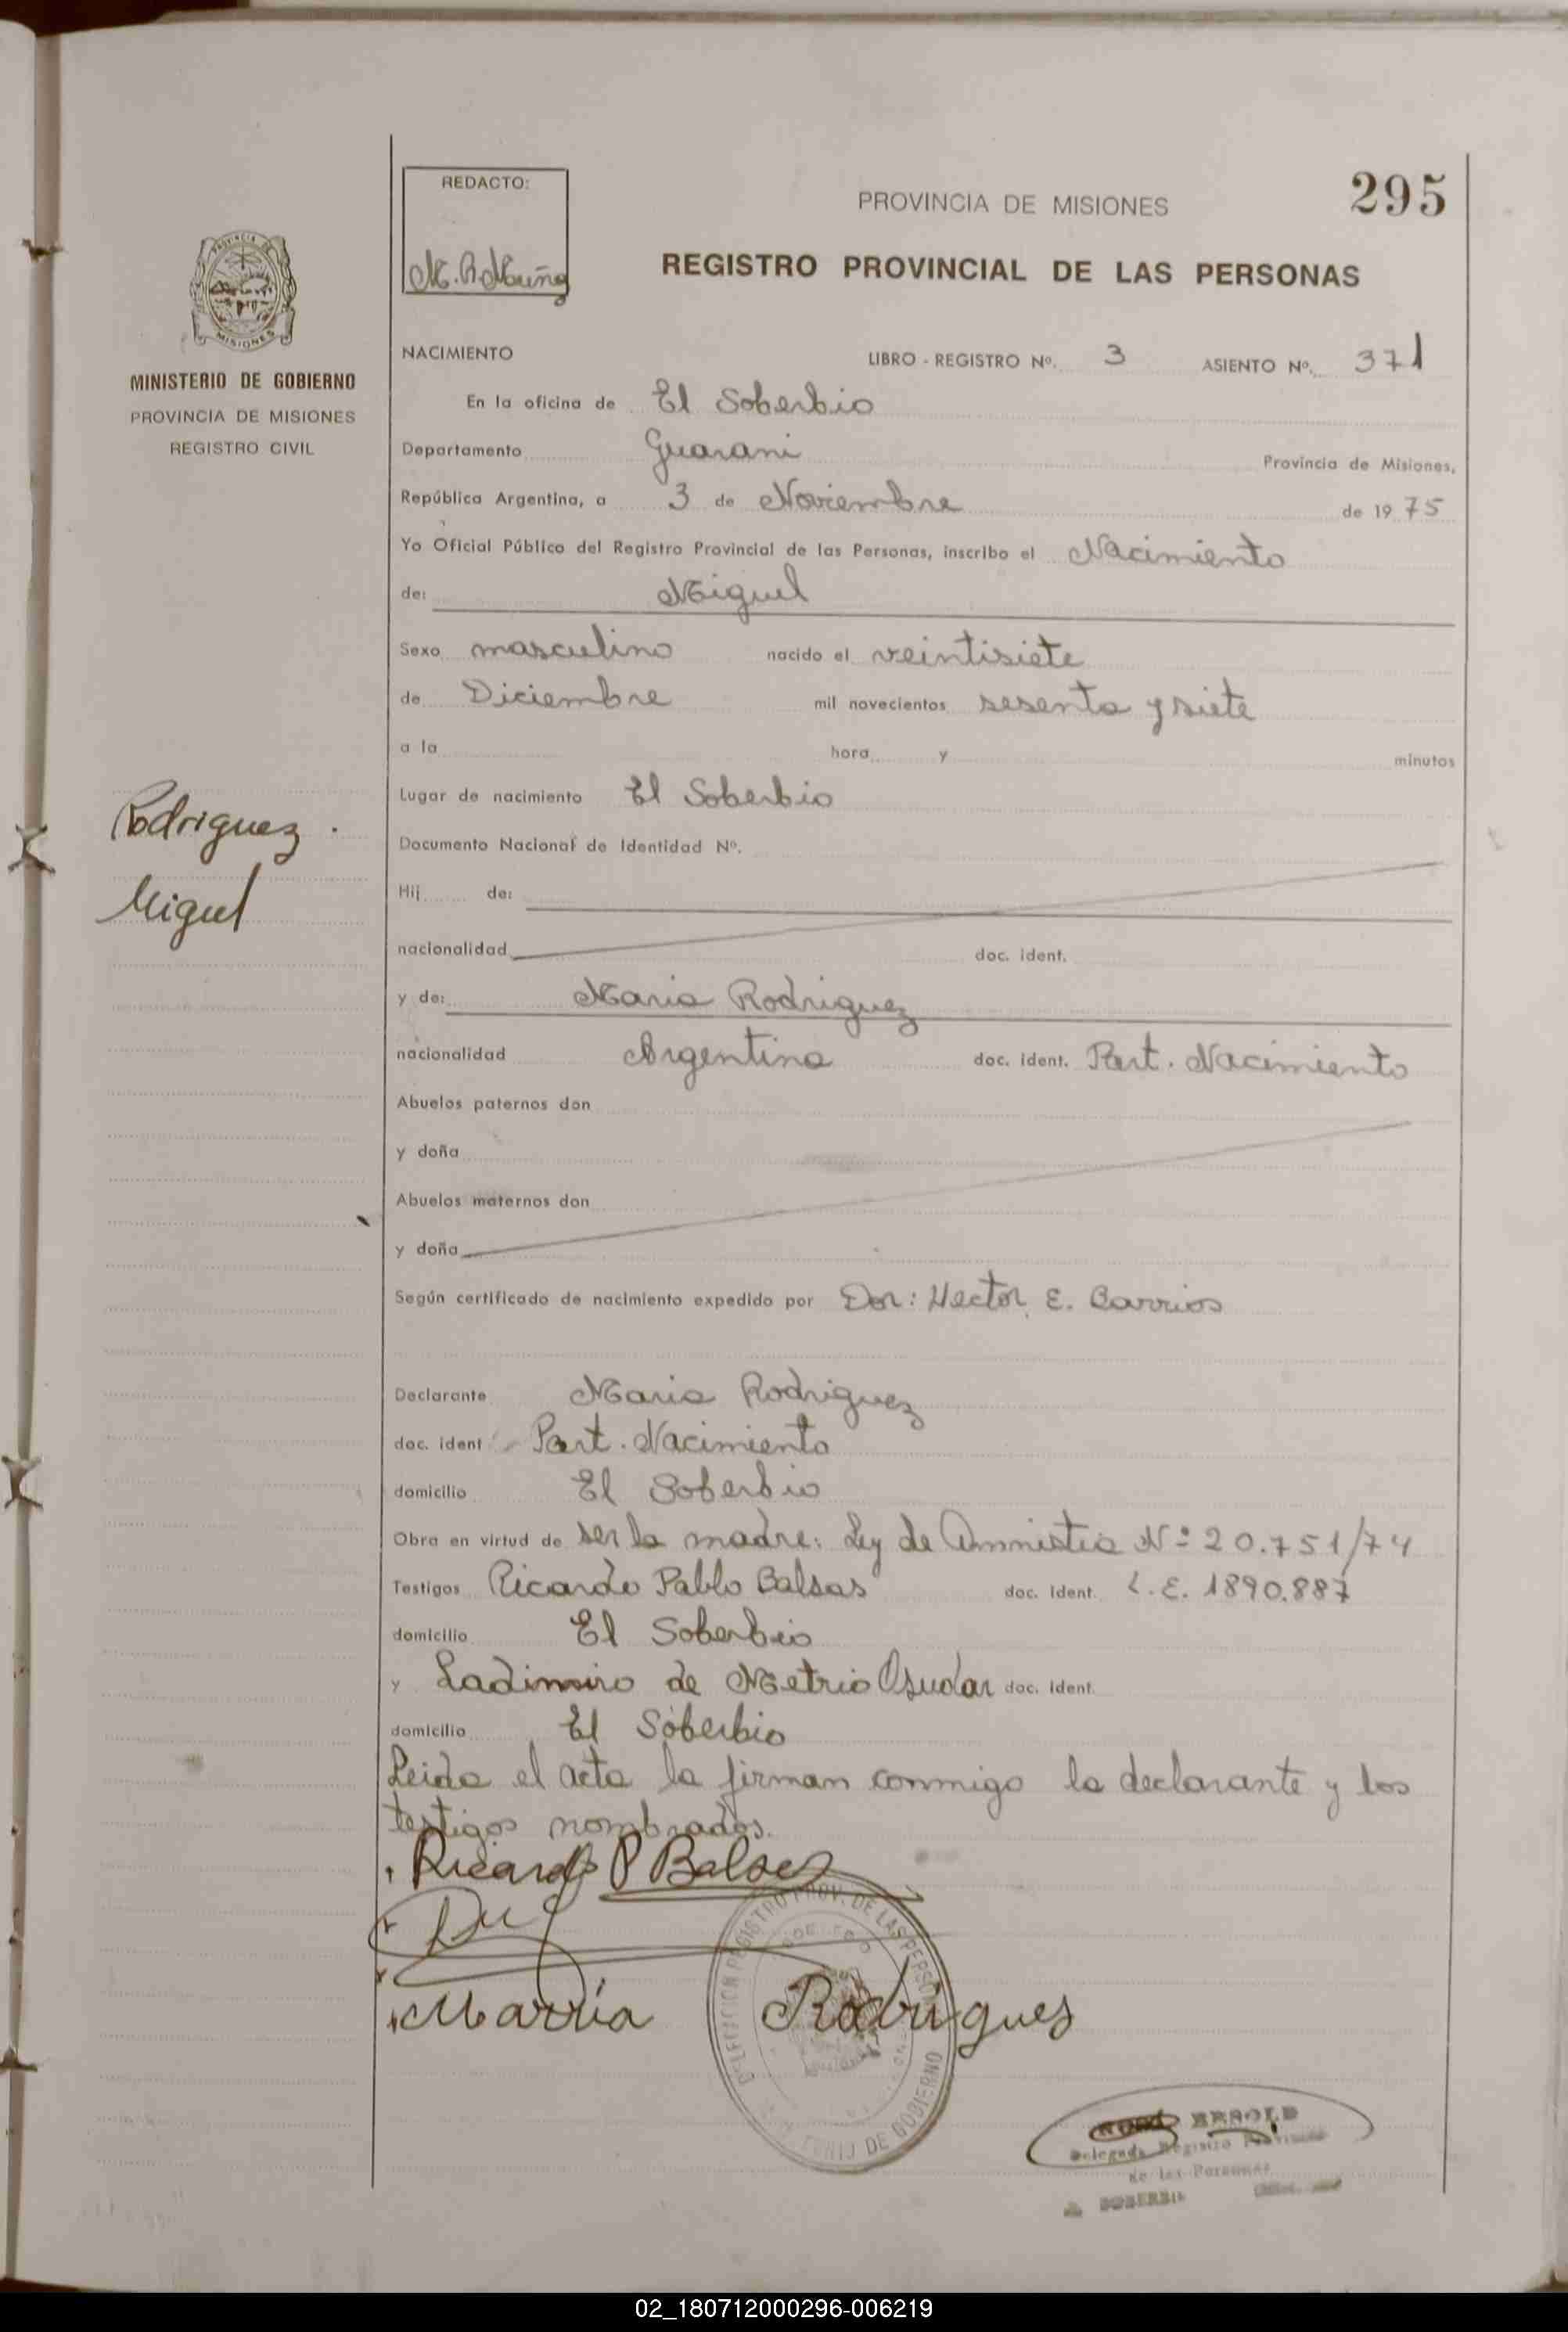 REDACTO:
PROVINCIA DE MISIONES
295
REGISTRO PROVINCIAL DE LAS PERSONAS
MISIONES
MINISTERIO DE GOBIERNO
PROVINCIA DE MISIONES
REGISTRO CIVIL
NACIMIENTO LIBRO - REGISTRO Nº. 3 ASIENTO Nº. 371
En la oficina de El Soberbio
Departamento Guarani Provincia de Misiones,
República Argentina, a 3 de Noviembre de 1975
Yo Oficial Público del Registro Provincial de las Personas, inscribo el Nacimiento
de: Miguel
Sexo masculino nacido el veintisiete
de Diciembre mil novecientos sesenta y siete
a la hora y minutos
Lugar de nacimiento El Soberbio
Rodriguez.
Miguel
Documento Nacional de Identidad Nº.
Hij de:
nacionalidad doc. ident.
y de: Maria Rodriguez
nacionalidad Argentina doc. ident. Part. Nacimiento
Abuelos paternos don
y doña
Abuelos maternos don
y doña
Según certificado de nacimiento expedido por Don: Hector E. Barrios
Declarante Maria Rodriguez
doc. ident Part. Nacimiento
domicilio El Soberbio
Obra en virtud de ser la madre: Ley de Amnistia Nº 20.751/74
Testigos Ricardo Pablo Balsas doc. ident. L.E. 1890.887
domicilio El Soberbio
y Ladimiro de Metrio doc. ident.
domicilio El Soberbio
Leida el acta la firman conmigo la declarante y los
testigos nombrados.
Ricardo P Balsas
Marria Rodrigues
DELEGACION REGISTRO PROV. DE LAS PERSONAS
DE GOBIERNO
HEROLD
Delegada Registro Provincial
de las Personas
SOBERBIO
02_180712000296-006219